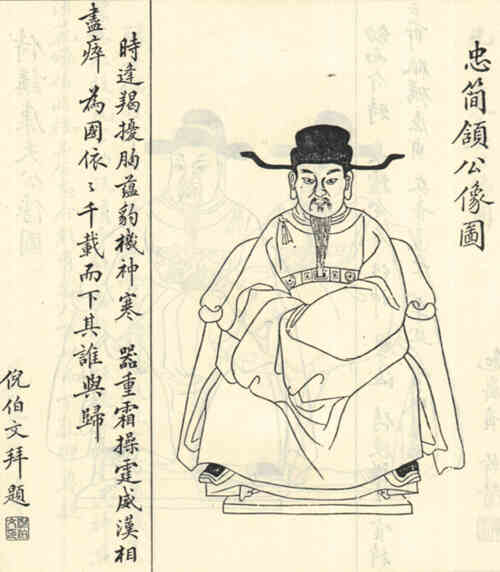 忠簡領公像圖
時違羯擾胸蘊豹機神寒 器重霜操霆威漢相
盡瘁 為國依〻千載而下其誰與歸
倪伯文拜題